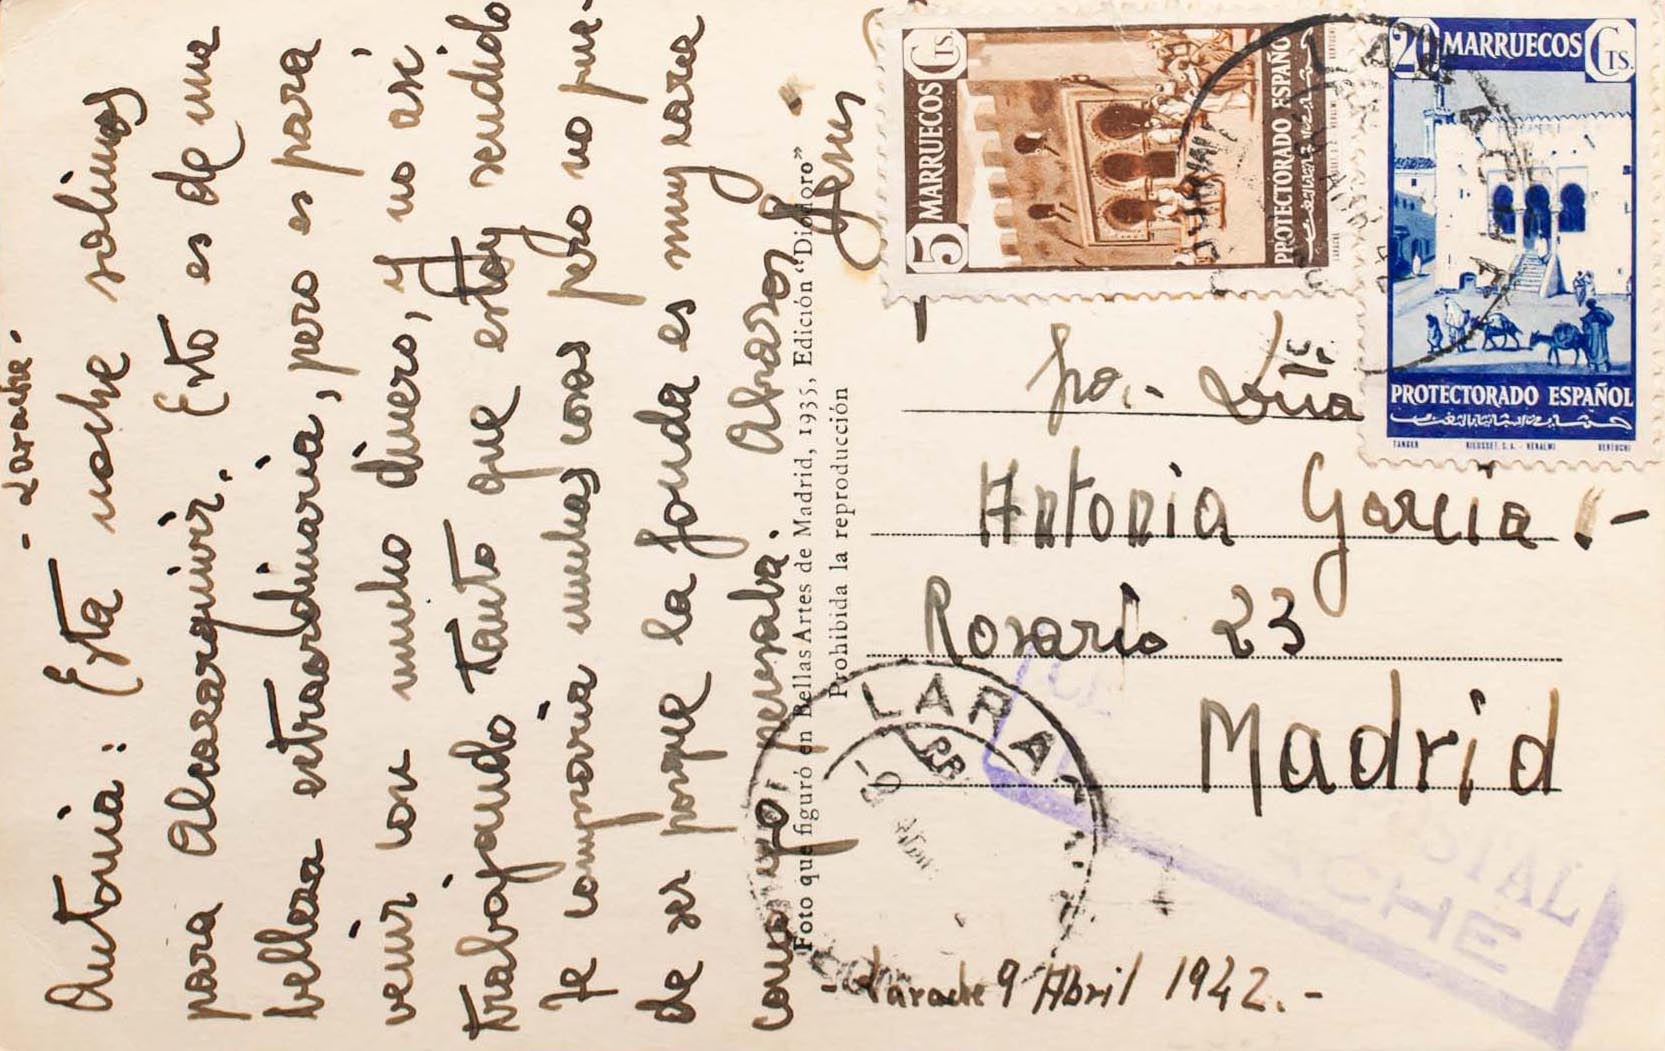 - Larache. -
Antonia: Esta noche salimos
para Alcazarquivir. Esto es de una
belleza extraordinaria, pero es para
venir con mucho dinero, y no así
trabajando tanto que estoy rendido
Te compraría muchas cosas pero no pue-
de ser porque la fonda es muy cara
como yo pensaba. Abrazos
Foto que figuró en Bellas Artes de Madrid, 1935, Edición "Diodoro"
Prohibida la reproducción
5 MARRUECOS Cts.
PROTECTORADO ESPAÑOL
حماية اسبانيا بالمغرب
20 MARRUECOS Cts.
PROTECTORADO ESPAÑOL
حماية اسبانيا بالمغرب
TANGER BERTUCHI
Antonia García.-
Rosario 23
Madrid
- Larache 9 Abril 1942.-
LARA